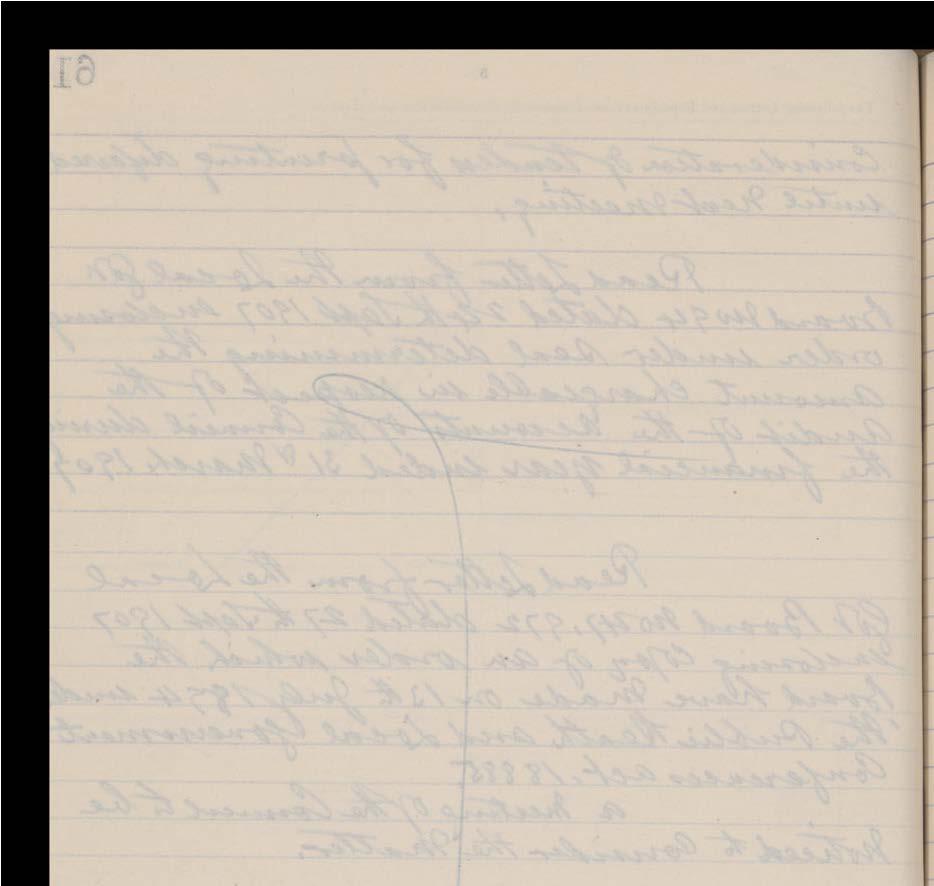 61
Consideration of tenders for printing defered
until next meeting.
Read letter from the Local Gov
Board No 94 dated 24th Sept 1907 enclosing
order under seal determining the
amount chargeable in respect of the
audit of the accounts of the Council during
the financial year ended 31st March 190
Read letter from the Local
Gov Board No dated 27th Sept 1907
Inclosing copy of an order which the
Board have made on 13th July und
the Public Health and Local Government
Conferences act. 1885
a meeting of the Council to be
to consider the matter.